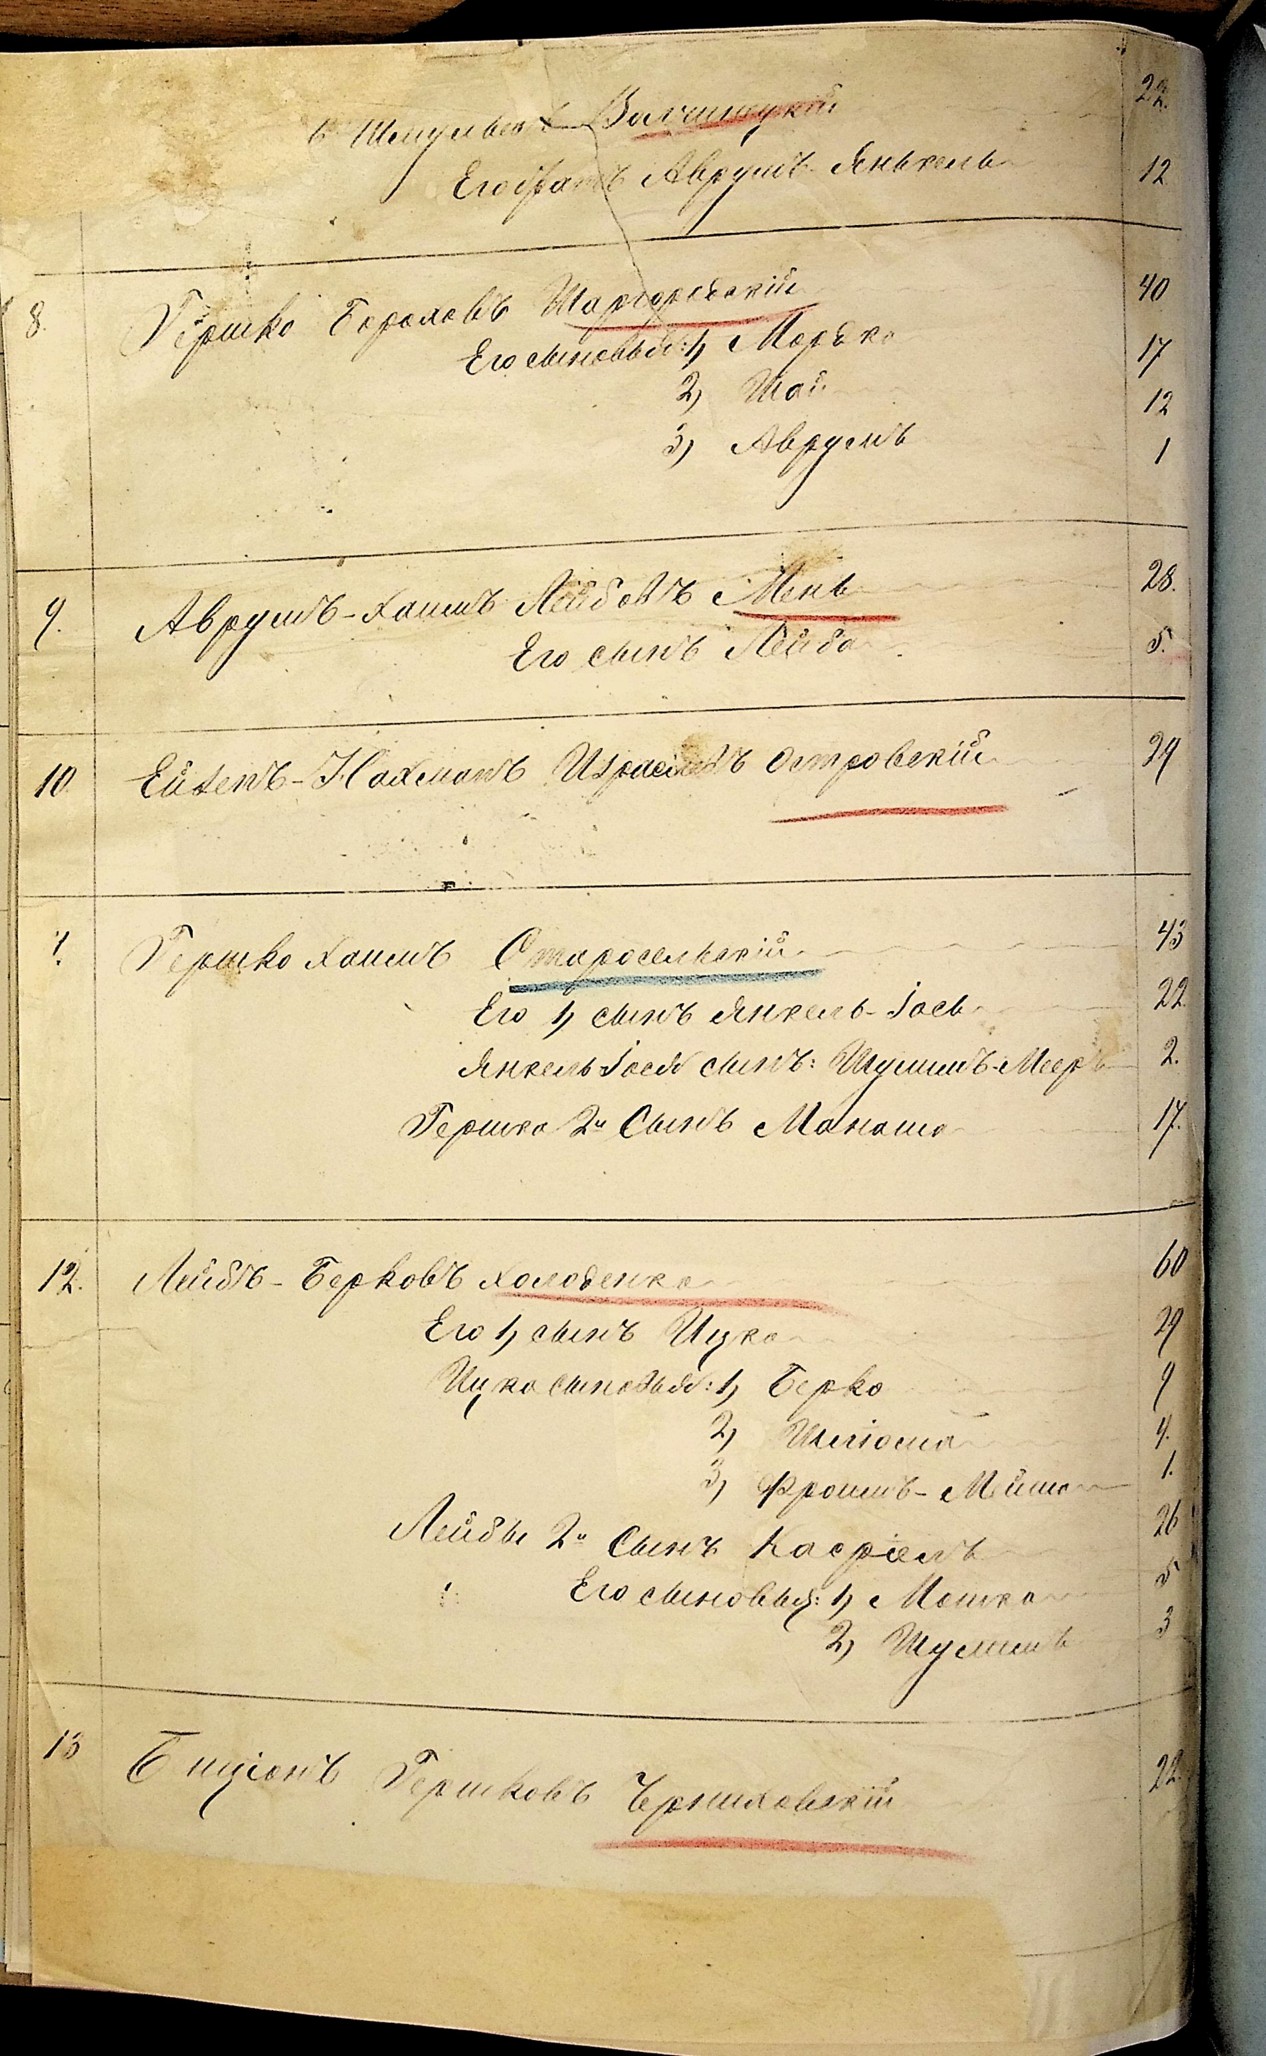 Шмулевъ 22.
Его братъ Аврумъ Янькель 12
8. Гершко Бороховъ Шаргородскій 40
Его сыновья: 1, Мордко 17
2, Шая 12
3, Аврумъ 1
9. Аврумъ-Хаимъ Лейбовъ Мень 28.
Его сынъ Лейба 5.
10. Нахманъ Израилевъ Островскій 29
Гершко Хаимъ Старосельскій 43
Его 1, сынъ Янкель-Іось 22
Янкель Іося сынъ: Шулимъ-Мееръ 2.
Гершка 2й Сынъ Манашо 17.
12. Лейбъ-Берковъ Холоденко 60
Его 1, сынъ Ицко 29
Ицко сыновья: 1, Берко 9
2, Шліома 4.
3, Фроимъ- 1.
Лейбы 2й Сынъ Касріель 26
Его сыновья: 1, Мошко 5
2, Шулимъ 3
13 Бенціонъ Гершковъ Черниховскій 22.